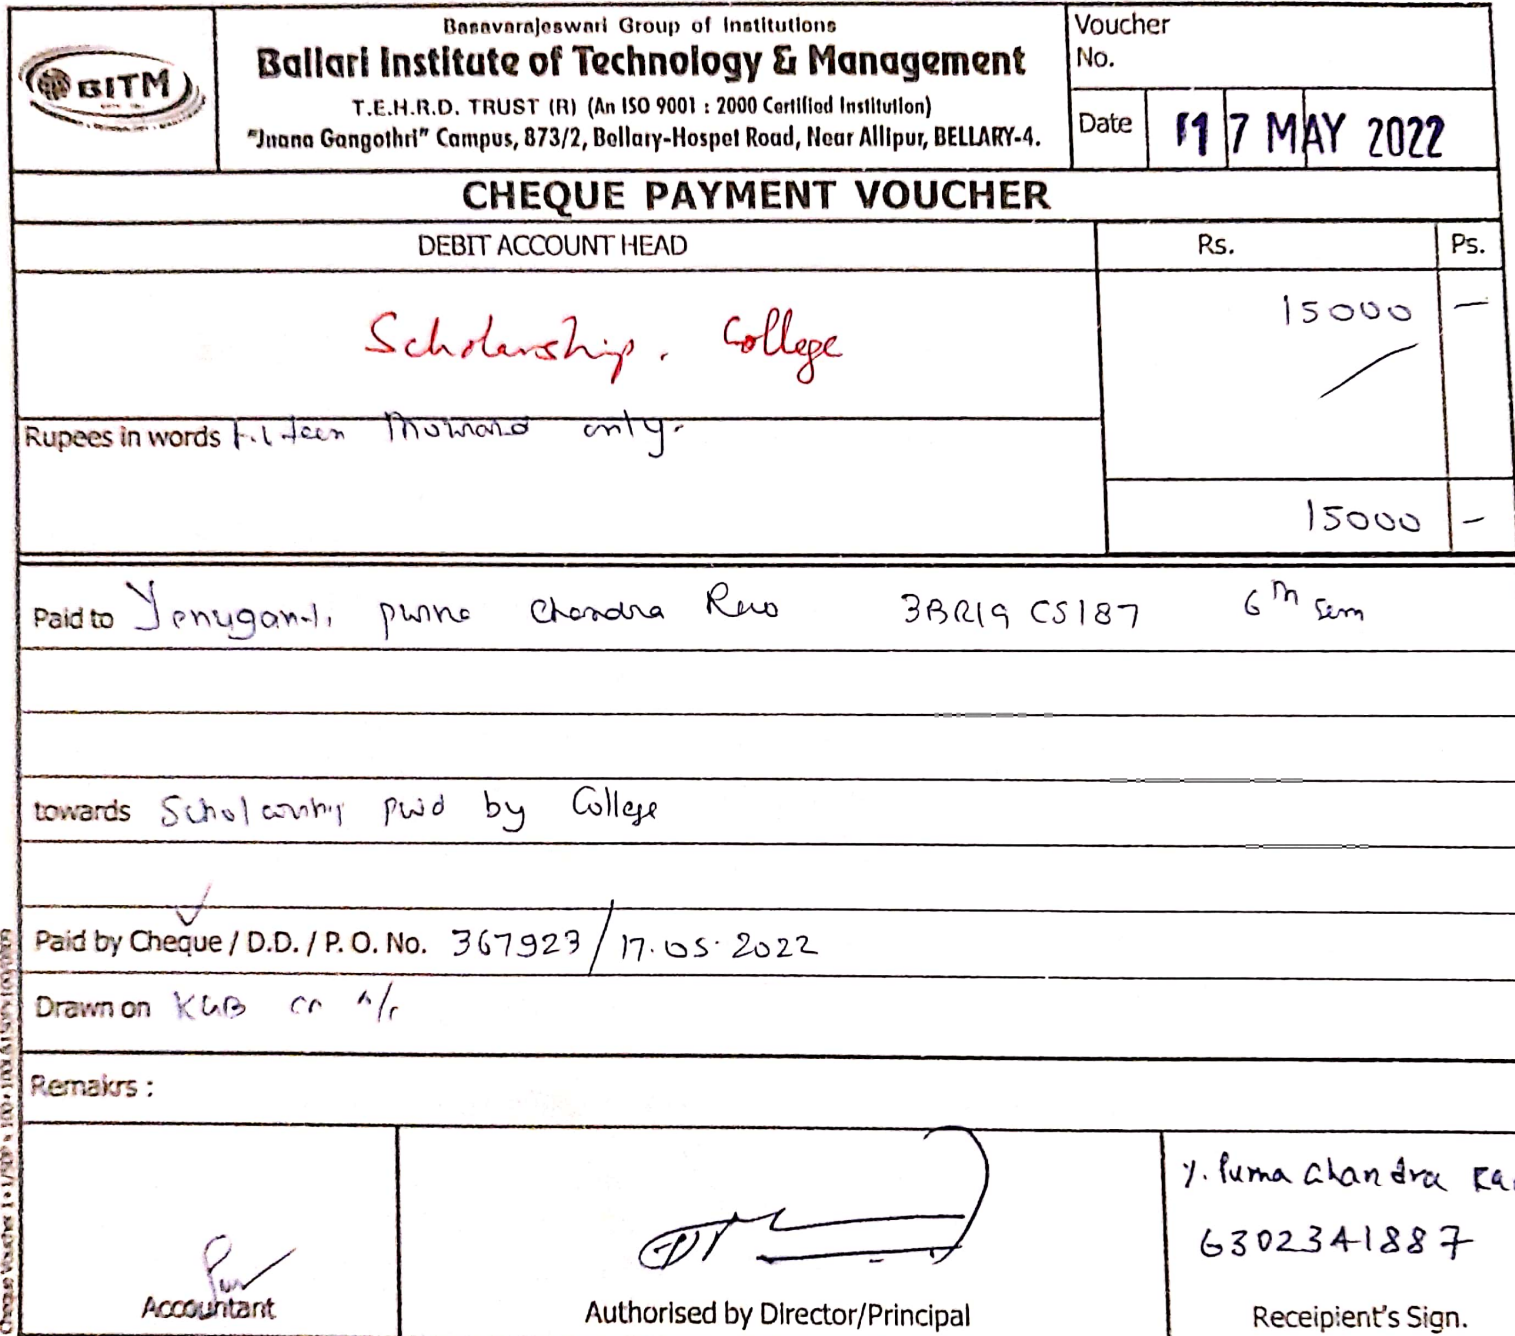 BITM
Basavarajeswari Group of Institutions
Ballari Institute of Technology & Management
T.E.H.R.D. TRUST (R) (An ISO 9001 : 2000 Certified Institution)
"Jnana Gangothri" Campus, 873/2, Bellary-Hospet Road, Near Allipur, BELLARY-4.
Voucher
No.
Date 17 MAY 2022
CHEQUE PAYMENT VOUCHER
DEBIT ACCOUNT HEAD Rs. Ps.
Scholarship. College 15000 —
Rupees in words Fifteen Thousand only.
15000 –
Paid to Chandra Rao 3BR19 CS187 6th Sem
towards Scholarship paid by College
Paid by Cheque / D.D. / P. O. No. 367923 / 17.05.2022
Drawn on KGB A/c
Remakrs :
Y. Purna Chandra
6302341887
Accountant
Authorised by Director/Principal
Receipient's Sign.